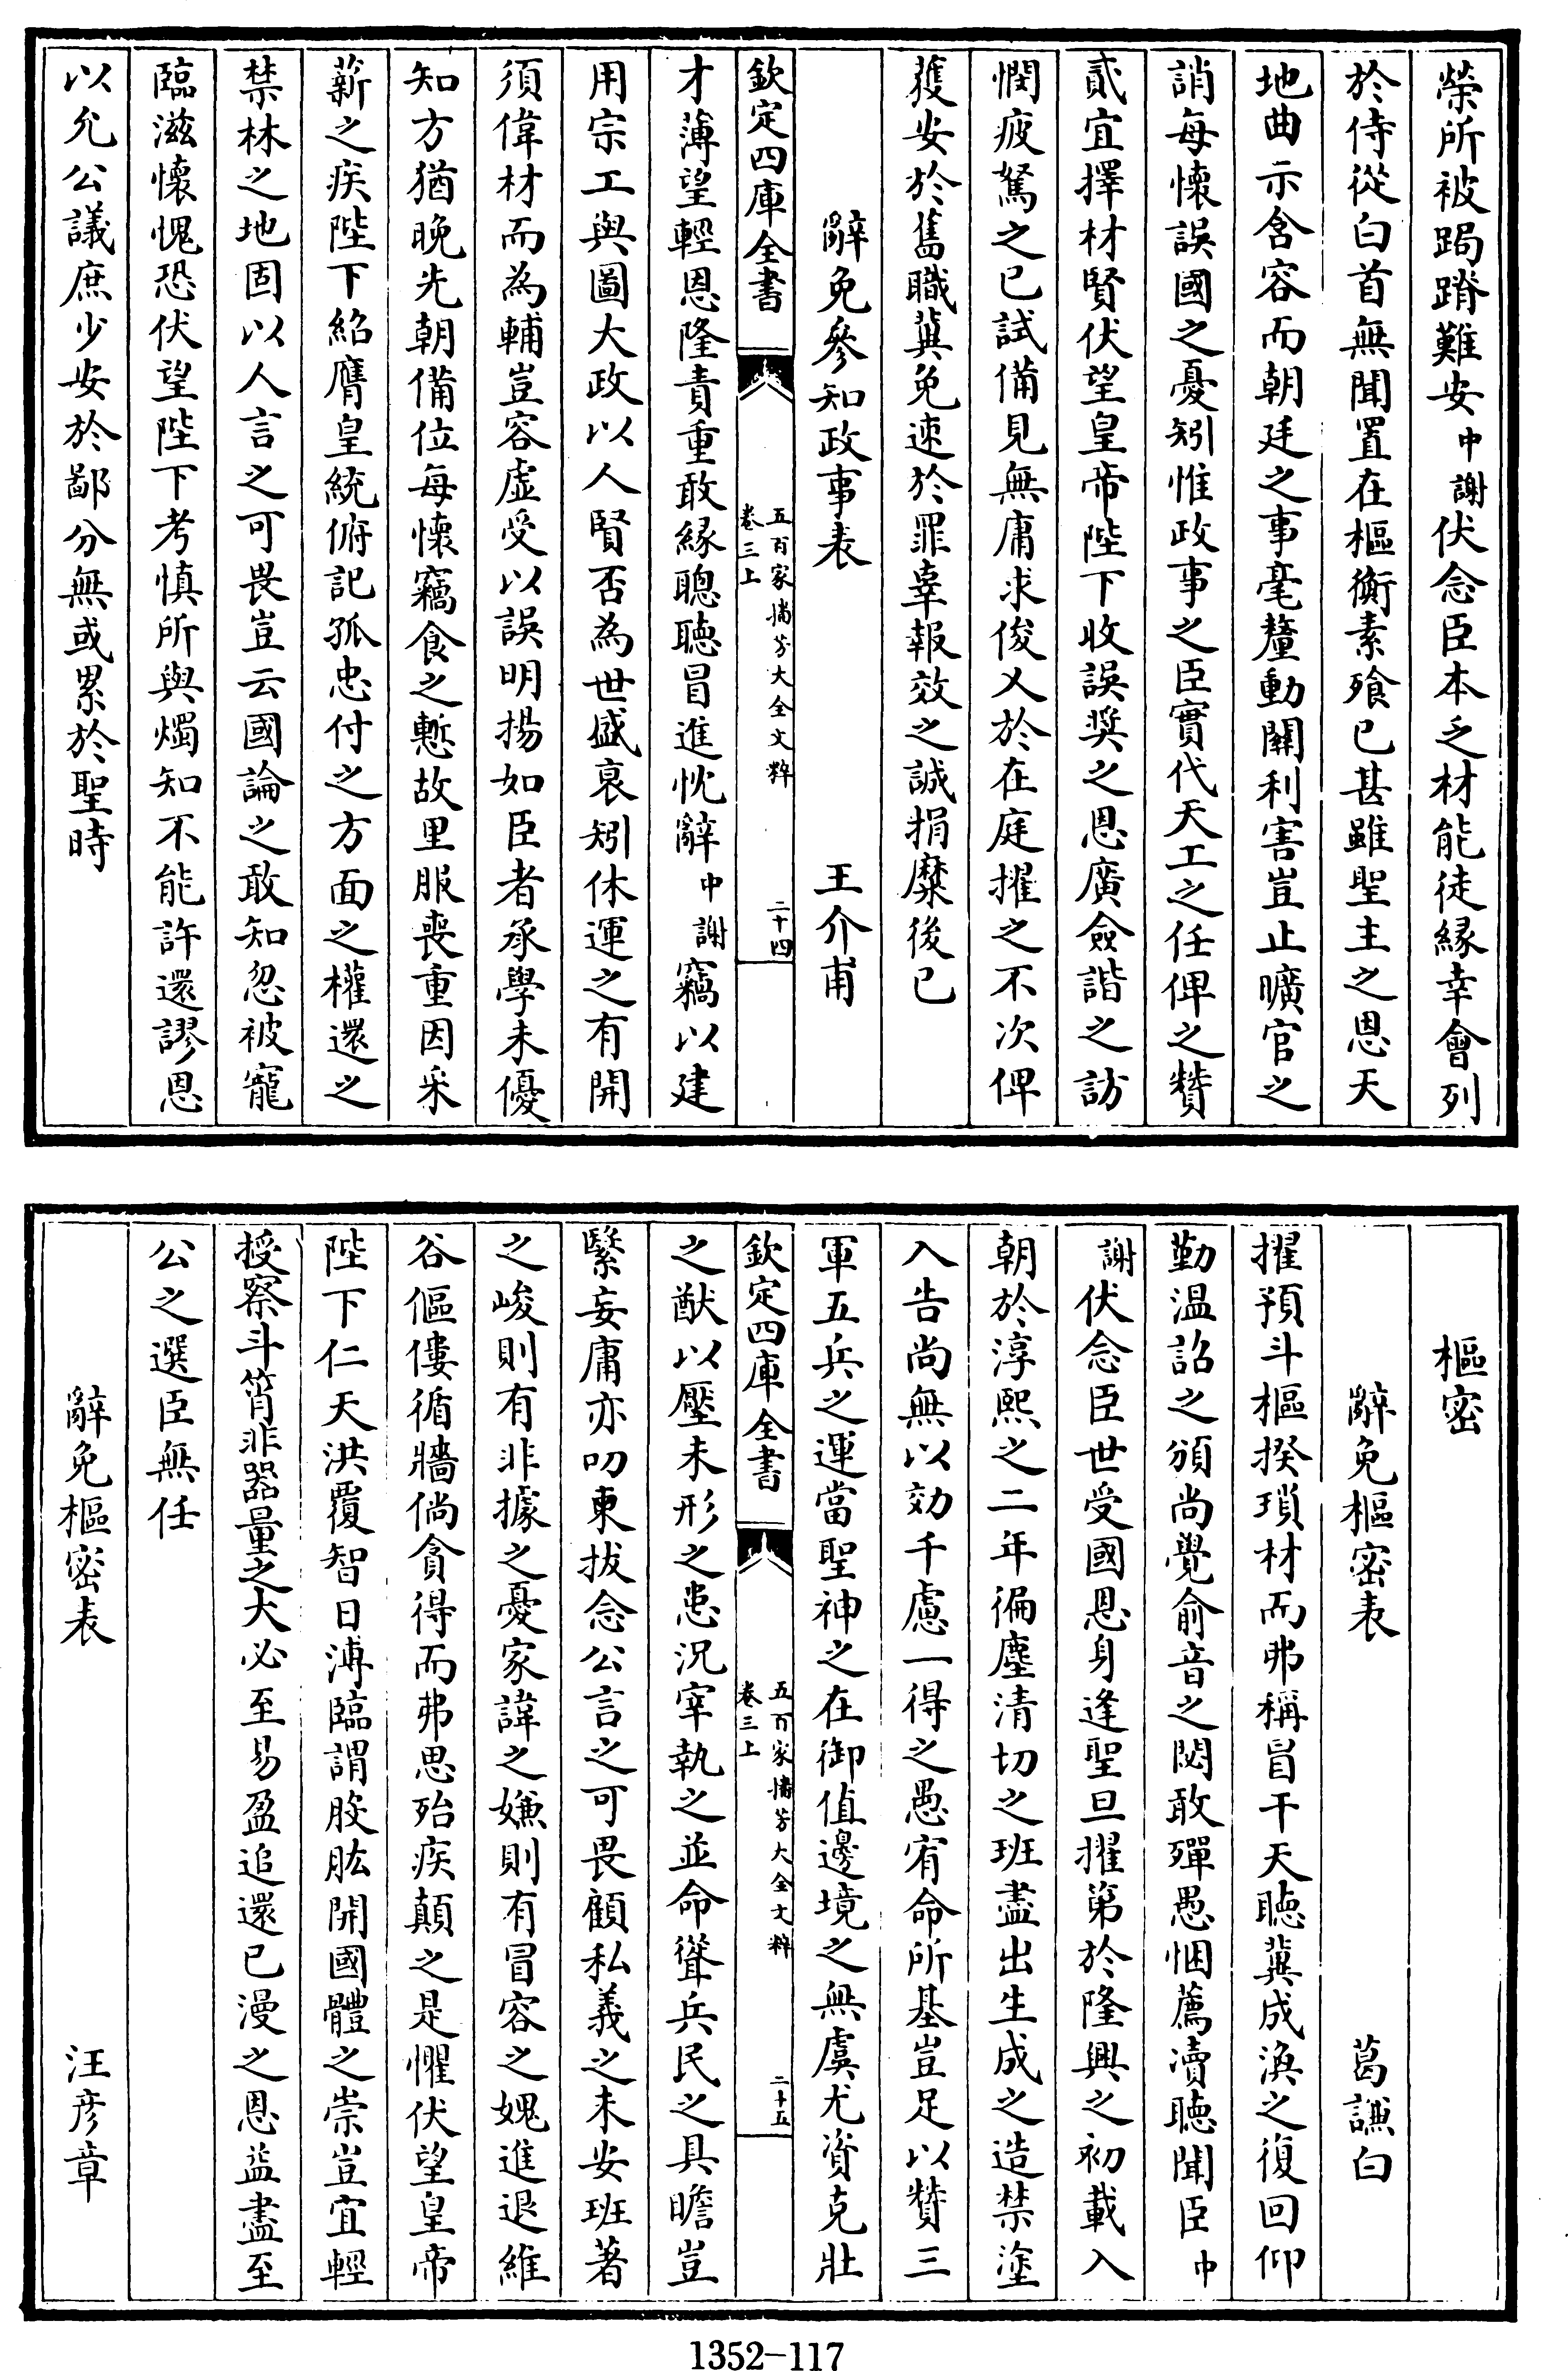 榮所被跼蹐難安中謝伏念臣本乏材能徒緣幸會列
於侍從白首無聞置在樞衡素飱已甚雖聖主之恩天
地曲示含容而朝廷之事毫釐動關利害豈止曠官之
誚每懷誤國之憂矧惟政事之臣實代天工之任俾之贊
貳宜擇材賢伏望皇帝陛下收誤奬之恩廣僉諧之訪
憫疲駑之已試備見無庸求俊乂於在庭擢之不次俾
獲安於舊職冀免速於罪辜報效之誠捐糜後已
辭免參知政事表
王介甫
欽定四庫全書
五百家播芳大全文粹
卷三上
二十四
才薄望輕恩隆責重敢緣聰聽冒進忱辭中謝竊以建
用宗工與圖大政以人賢否為世盛衰矧休運之有開
須偉材而為輔豈容虛受以誤明揚如臣者承學未優
知方猶晚先朝備位每懷竊食之慙故里服喪重因采
薪之疾陛下紹膺皇統俯記孤忠付之方面之權還之
禁林之地固以人言之可畏豈云國論之敢知忽被寵
臨滋懷愧恐伏望陛下考慎所與燭知不能許還謬恩
以允公議庶少安於鄙分無或累於聖時
樞密
辭免樞密表
葛謙白
擢預斗樞揆瑣材而弗稱冒干天聽冀成渙之復回仰
勤温詔之頒尚覺俞音之閟敢殫愚悃薦凟聽聞臣中
謝伏念臣世受國恩身逢聖旦擢第於隆興之初載入
朝於淳熙之二年徧塵清切之班盡出生成之造禁塗
入告尚無以効千慮一得之愚宥命所基豈足以贊三
軍五兵之運當聖神之在御值邊境之無虞尤資克壯
欽定四庫全書
五百家播芳大全文粹
卷三上
二十五
之猷以壓未形之患況宰執之並命聳兵民之具瞻豈
緊妄庸亦叨柬拔念公言之可畏顧私義之未安班著
之峻則有非據之憂家諱之嫌則有冒容之媿進退維
谷傴僂循牆倘貪得而弗思殆疾顛之是懼伏望皇帝
陛下仁天洪覆智日溥臨謂股肱開國體之崇豈宜輕
授察斗筲非器量之大必至易盈追還已漫之恩益盡至
公之選臣無任
辭免樞密表
汪彥章
1352-117